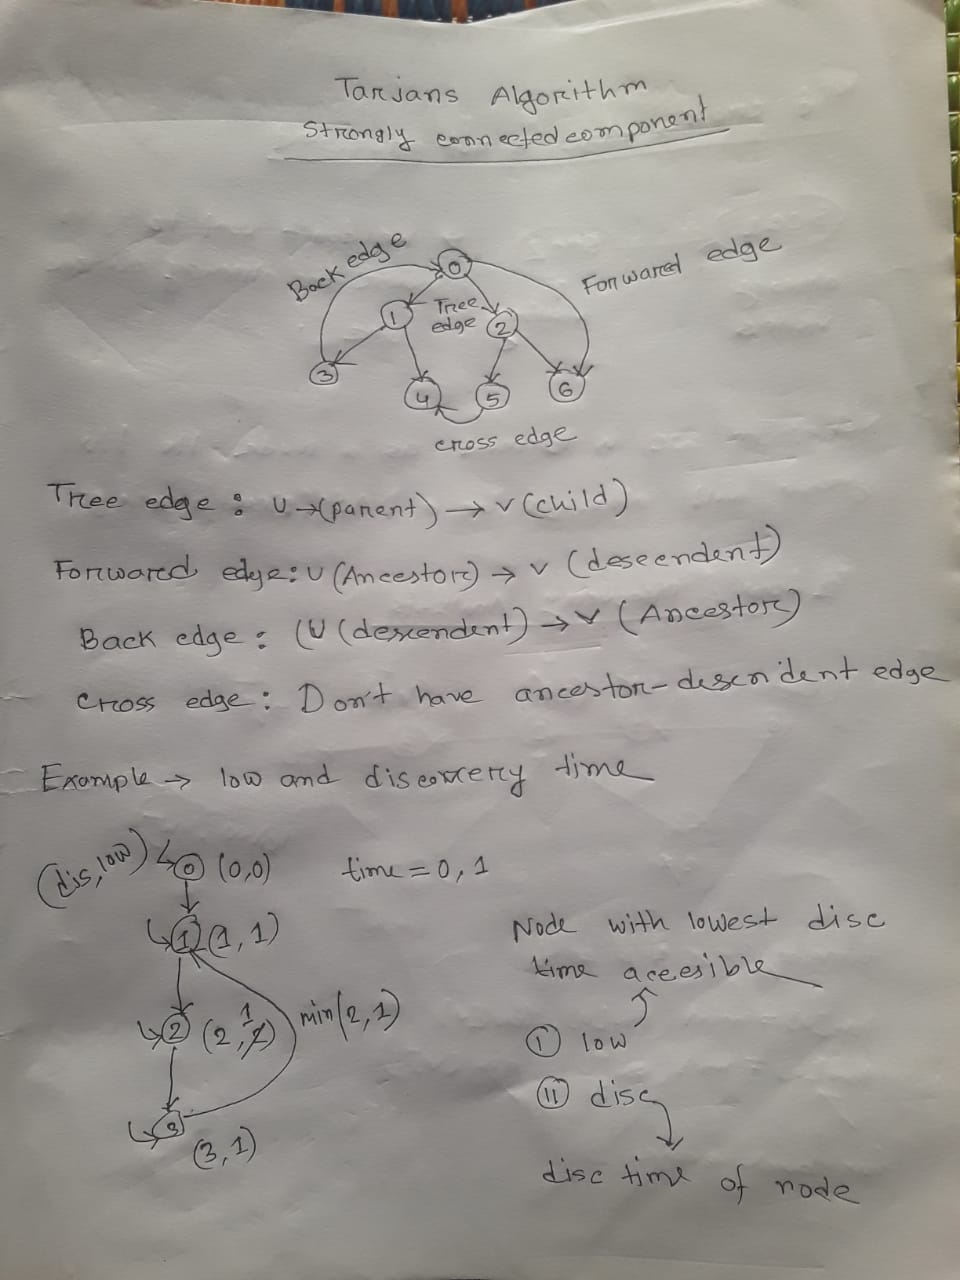 Tarjans Algorithm
Strongly connected component
Back edge
Forward edge
0
1
Tree
edge
2
3
4
5
6
cross edge
Tree edge : U→(parent) → v(child)
Forward edge: U (Ancestor) → v (descendent)
Back edge : (U (descendent) → v (Ancestor)
Cross edge : Don't have ancestor-descendent edge
Example → low and discovery time
(dis, low)
0 (0,0)
time = 0, 1
1 (1, 1)
Node with lowest disc
time accesible
2 (2, 2) 1
min(2, 1)
(I) low
(II) disc
3
(3, 1)
disc time of node